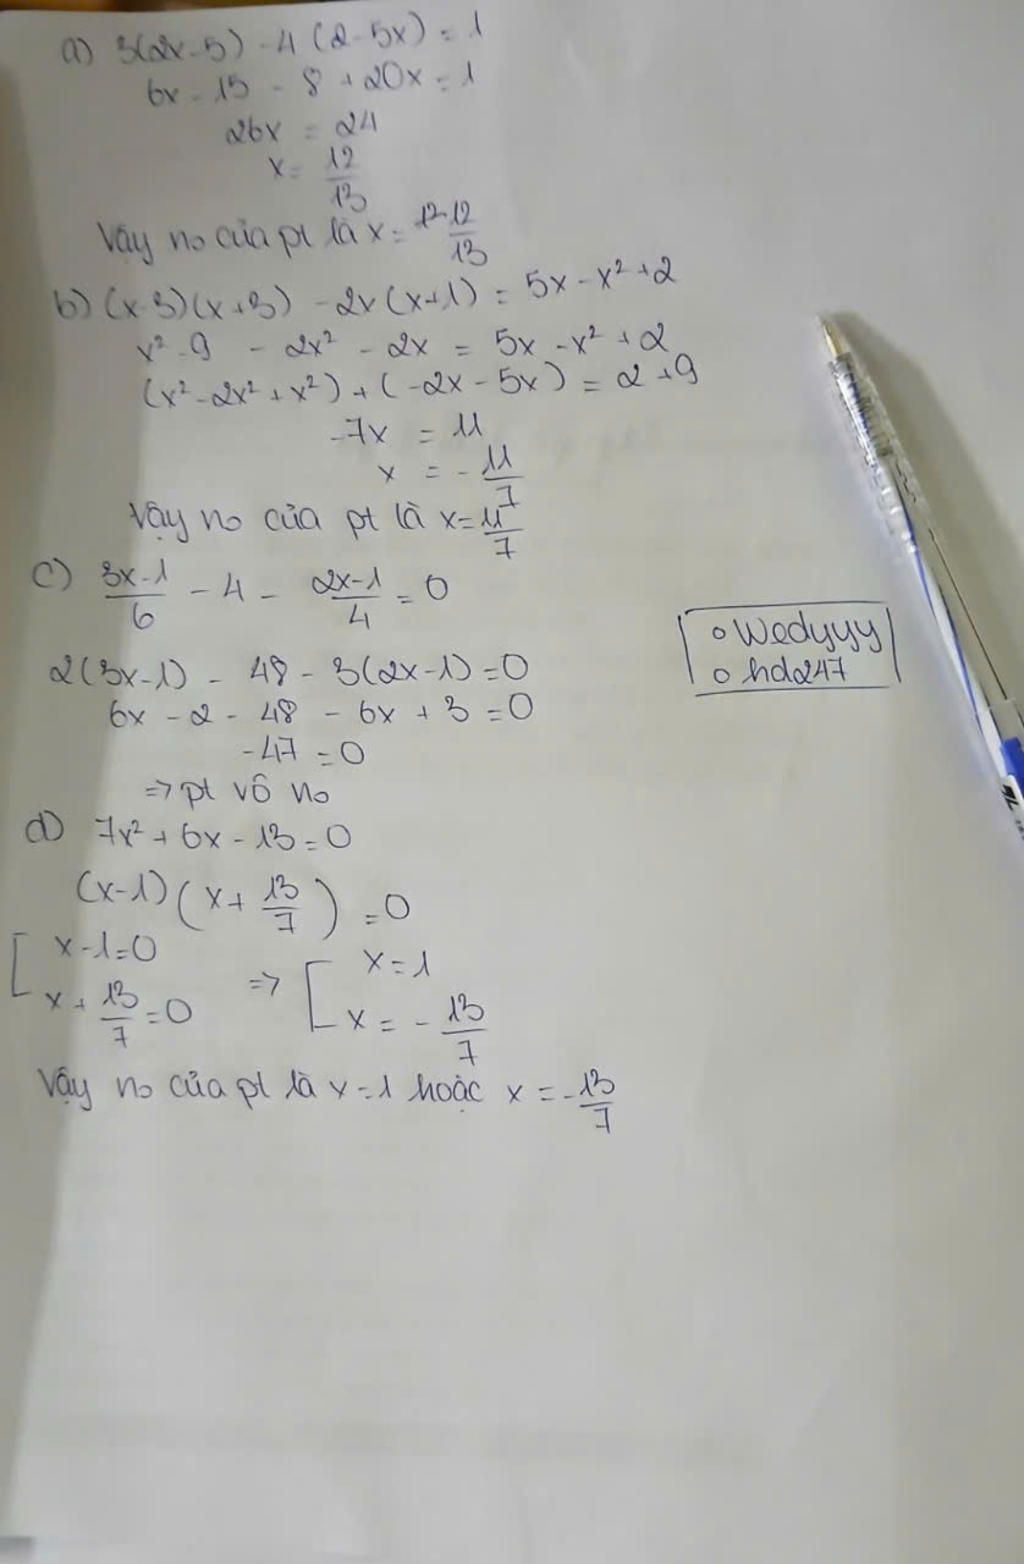 a) 3(2x-5) - 4(2-5x) = 1
6x - 15 - 8 + 20x = 1
26x = 24
x = 12/13
Vậy no của pt là x = 12/13
b) (x-3)(x+3) - 2x(x+1) = 5x - x² + 2
x² - 9 - 2x² - 2x = 5x - x² + 2
(x² - 2x² + x²) + (-2x - 5x) = 2 + 9
-7x = 11
x = -11/7
Vậy no của pt là x = 11/7
c) (3x-1)/6 - 4 - (2x-1)/4 = 0
2(3x-1) - 48 - 3(2x-1) = 0
6x - 2 - 48 - 6x + 3 = 0
-47 = 0
=> pt vô no
d) 7x² + 6x - 13 = 0
(x-1)(x + 13/7) = 0
[ x-1=0 => [ x=1
x + 13/7 = 0 x = -13/7
Vậy no của pt là x=1 hoặc x = -13/7
o Wedyyy
o hd247